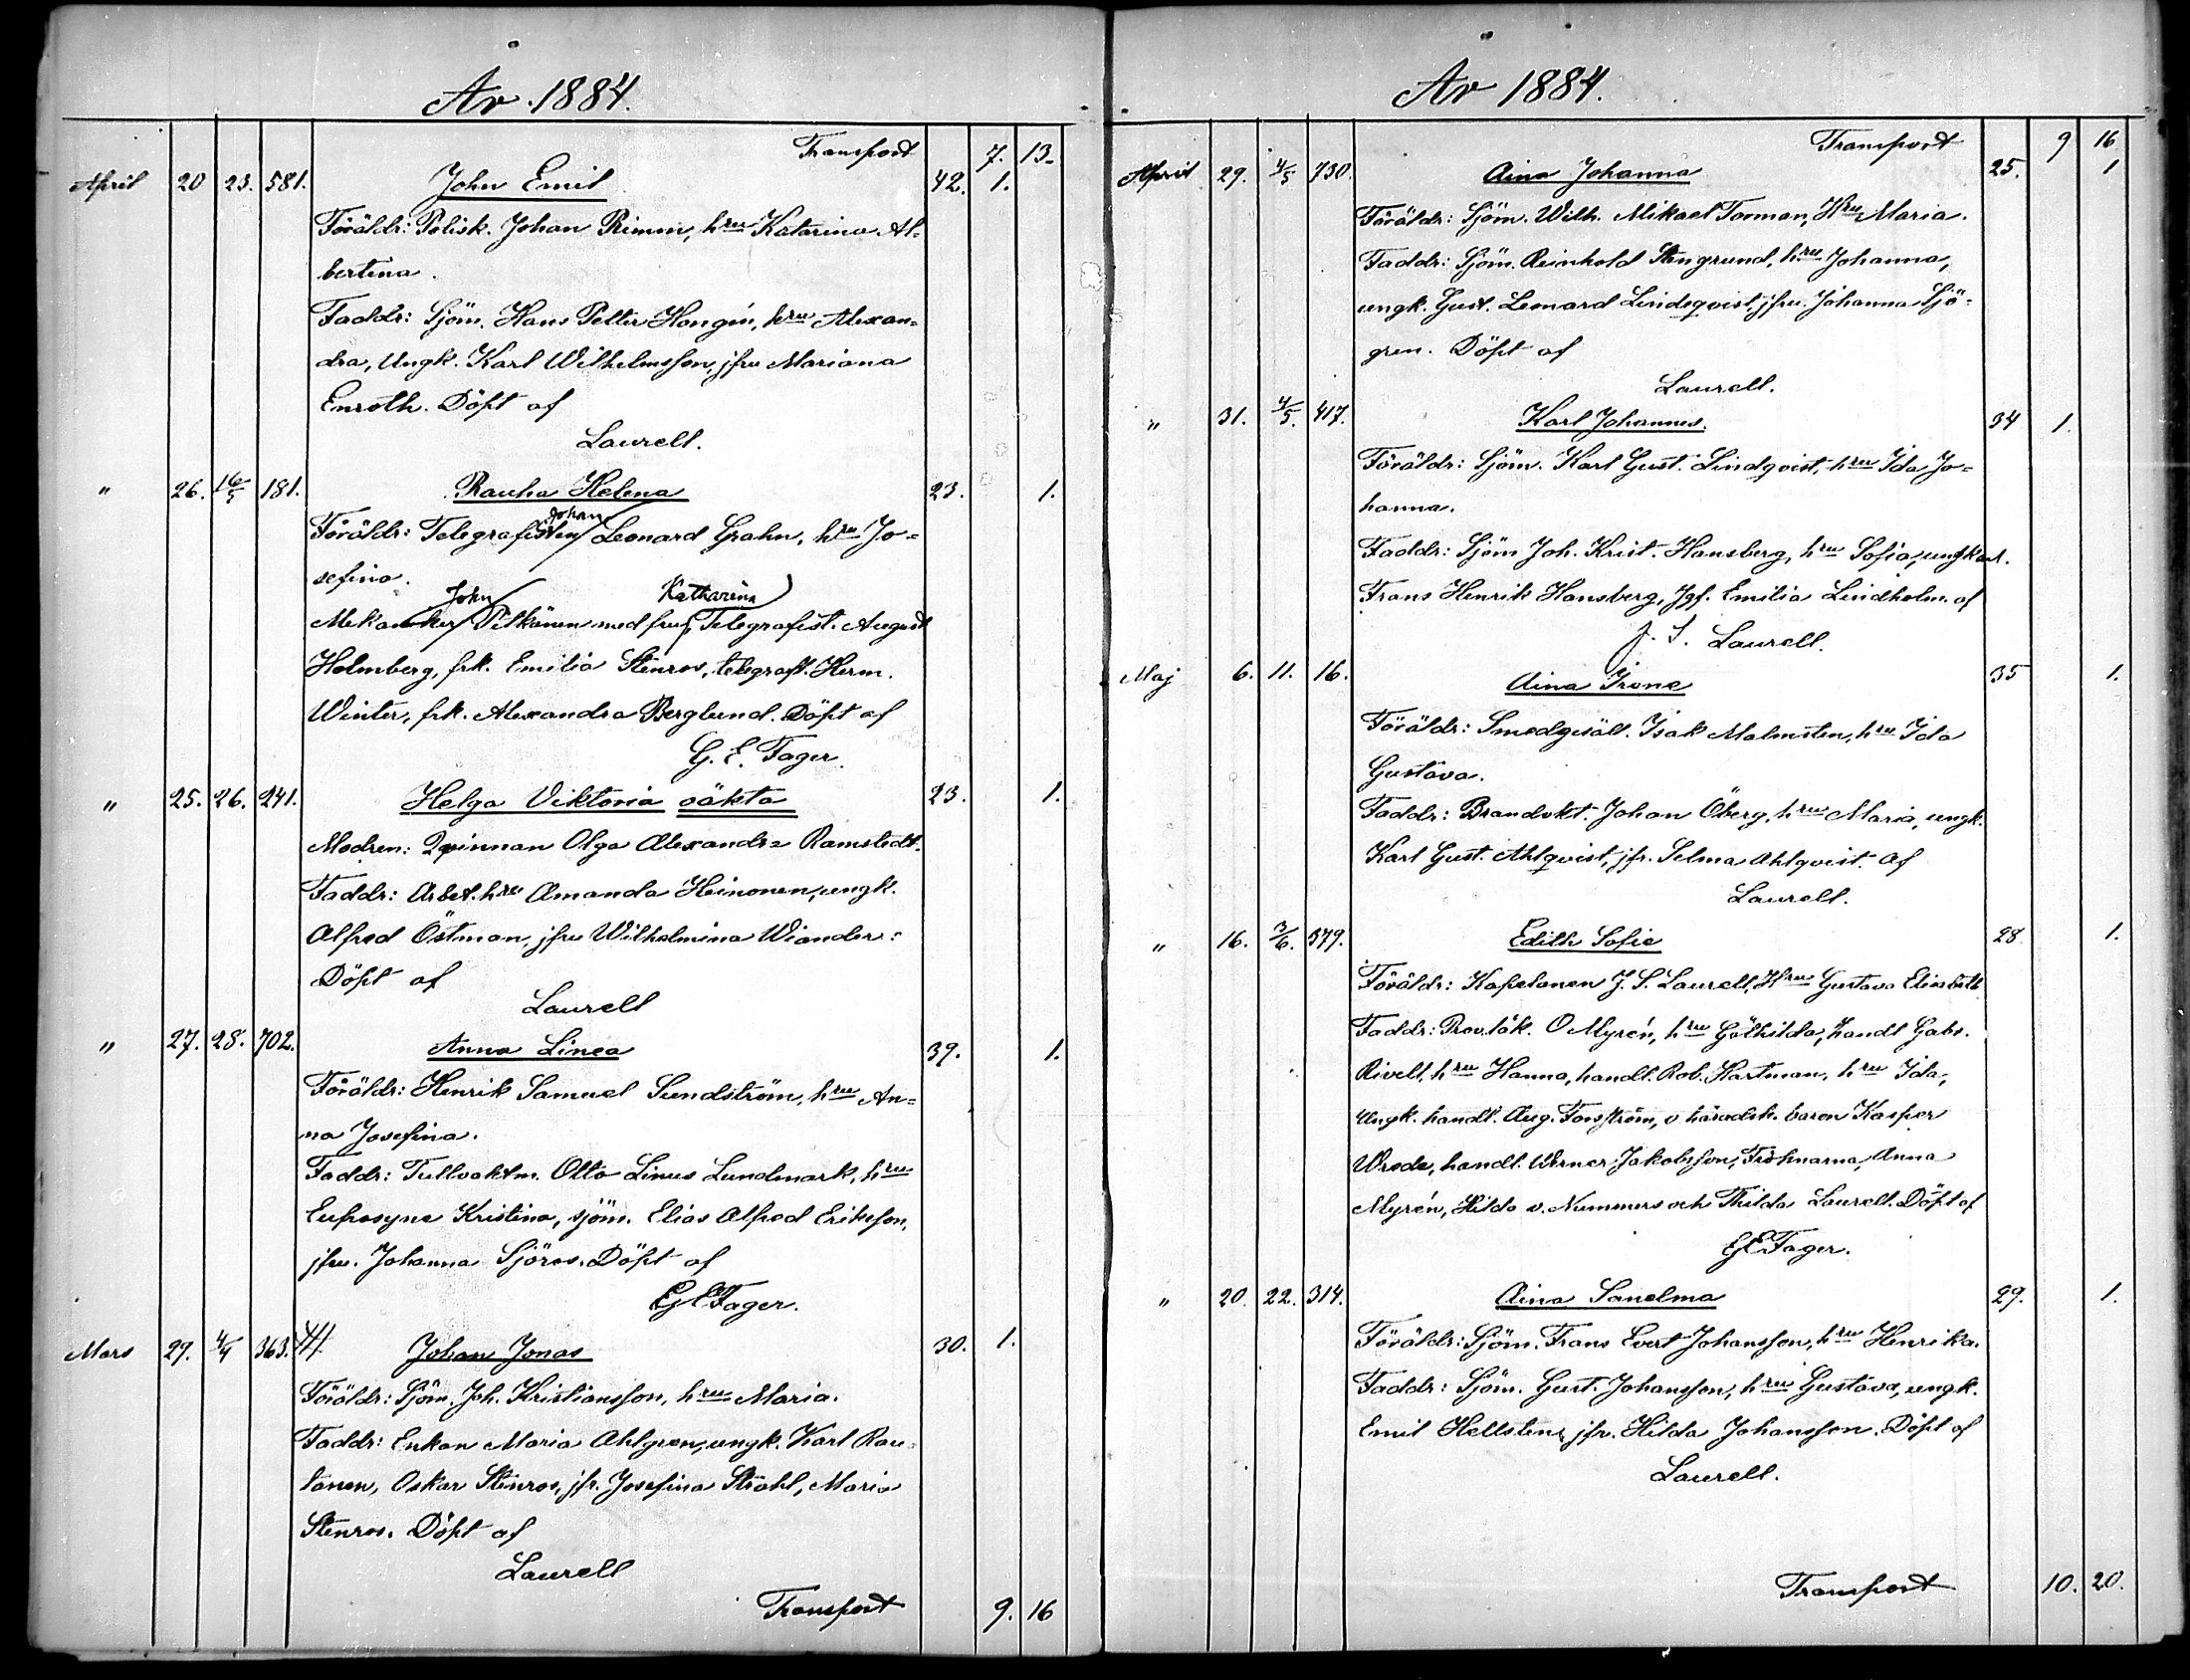 År 1884.
Transport 7. 13.
April 20 23. 581. John Emil 42. 1.
Föräldr: Polisk. Johan Rimm, hru Katarina Al-
bertina.
Faddr: Sjöm. Hans Petter Hongén, hru Alexan-
dra, Ungk. Karl Wilhelmsson, jfru Mariana
Enroth. Döpt af
Laurell.
" 26. 16/5 181. Rauha Helena 23. 1.
Johan
Föräldr: Telegrafisten Leonard Grahn, hru Jo-
sefina.
John Katharina
Mekaniker Pitkänen med fru, Telegrafist. August
Holmberg, frk. Emilia Stenros, telegraft. Herm.
Winter, frk. Alexandra Berglund. Döpt af
G. E. Fager.
" 25. 26. 241. Helga Viktoria oäkta 23. 1.
Modren: Qvinnan Olga Alexandra Ramstedt.
Faddr: Arbet. hru Amanda Heinonen, ungk.
Alfred Östman, jfru Wilhelmina Wiander:
Döpt af
Laurell
" 27. 28. 702. Anna Linea 39. 1.
Föräldr: Henrik Samuel Sundström, hru An-
na Josefina.
Faddr: Tullvaktm. Otto Linus Lundmark, hru
Eufrosyne Kristina, sjöm. Elias Alfred Eriksson,
jfru. Johanna Sjöros. Döpt af
GEFager.
Mars 29. 4/4 363. Johan Jonas 30. 1.
Föräldr: Sjöm. Joh. Kristiansson, hru Maria.
Faddr: Enkan Maria Ahlgren, ungk. Karl Rau-
tanen, Oskar Stenros, jfr. Josefina Stråhl, Maria
Stenros. Döpt af
Laurell
Transport 9. 16
År 1884.
Transport 9 16
April 29. 4/5 730. Aina Johanna 25. 1
Föräldr: Sjöm. Wilh. Mikael Forman, Hru Maria.
Faddr: Sjöm. Reinhold Stengrund, hru Johanna,
ungk. Gust. Leonard Lindeqvist, jfru. Johanna Sjö-
gren. Döpt af
Laurell.
" 31. 4/5. 417. Karl Johannes. 34 1.
Föräldr: Sjöm. Karl Gust. Lindqvist, hru Ida Jo-
hanna.
Faddr: Sjöm Joh. Krist. Hansberg, hru Sofia, ungkarl.
Frans Henrik Hansberg, Jgf. Emilia Lindholm. af
J. S. Laurell.
Maj 6. 11. 16. Aina Irene 35 1.
Föräldr: Smedgesäll. Isak Malmsten, hru Ida
Gustava.
Faddr: Brandvkt. Johan Öberg, hru Maria, ungk.
Karl Gust. Ahlqvist, jfr. Selma Ahlqvist. af
Laurell.
" 16. 3/6. 579. Edith Sofie 28 1.
Föräldr: Kapelanen J. S. Laurell, Hru Gustava Elisabeth
Faddr: Prov.läk. O Myrén, hru Göthilda, handl Gabr.
Rivell, hru Hanna, handl. Rob. Hartman, hru Ida,
Ungk. handl. Aug. Forsström, v häradsh. baron Kasper
Wrede, handl. Werner Jakobsson, Fröknarna, Anna
Myrén, Hilda v. Nummers och Thilda Laurell. Döpt af
GEFager.
" 20. 22. 314. Aina Sanelma 29. 1.
Föräldr: Sjöm. Frans Evert Johansson, hru Henrika.
Faddr: Sjöm. Gust. Johansson, hru Gustava, ungk.
Emil Hellsten, jfr. Hilda Johansson. Döpt af
Laurell.
Transport 10. 20.